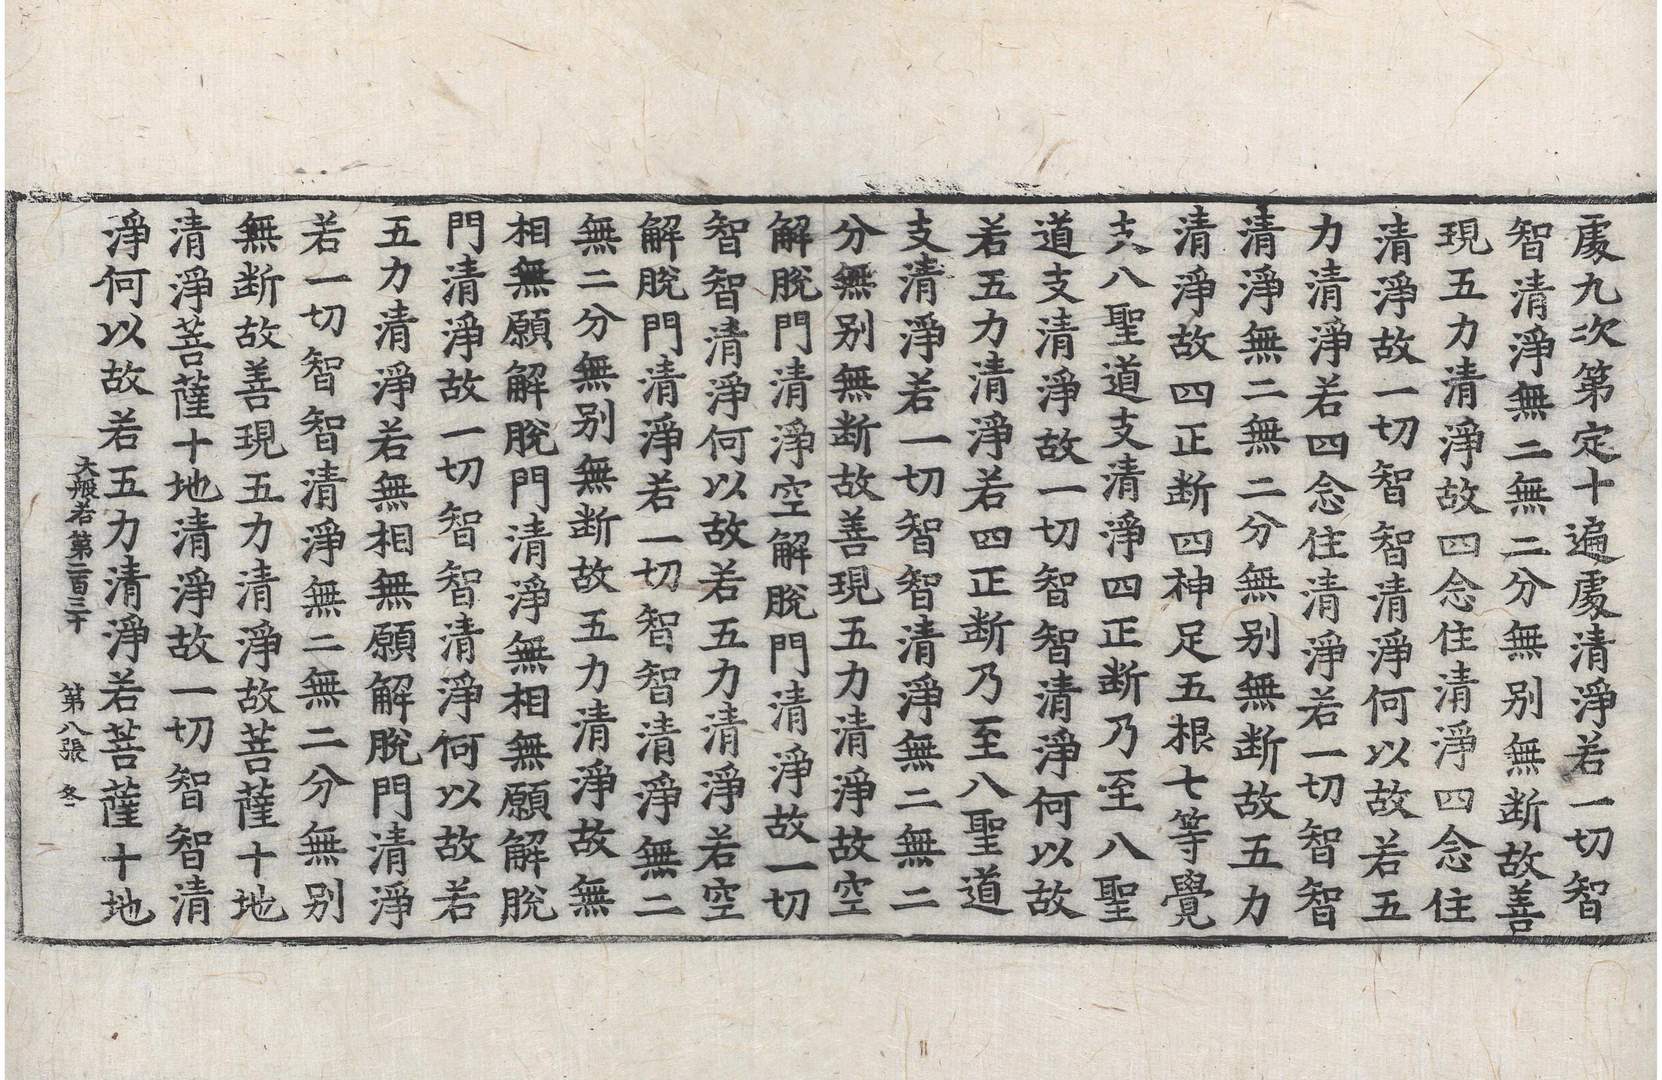 處九次第定十遍處清淨若一切智
智清淨無二無二分無別無斷故善
現五力清淨故四念住清淨四念住
清淨故一切智智清淨何以故若五
力清淨若四念住清淨若一切智智
清淨無二無二分無別無斷故五力
清淨故四正斷四神足五根七等覺
支八聖道支清淨四正斷乃至八聖
道支清淨故一切智智清淨何以故
若五力清淨若四正斷乃至八聖道
支清淨若一切智智清淨無二無二
分無別無斷故善現五力清淨故空
解脫門清淨空解脫門清淨故一切
智智清淨何以故若五力清淨若空
解脫門清淨若一切智智清淨無二
無二分無別無斷故五力清淨故無
相無願解脫門清淨無相無願解脫
門清淨故一切智智清淨何以故若
五力清淨若無相無願解脫門清淨
若一切智智清淨無二無二分無別
無斷故善現五力清淨故菩薩十地
清淨菩薩十地清淨故一切智智清
淨何以故若五力清淨若菩薩十地
大般若第二百三十 第八張 冬